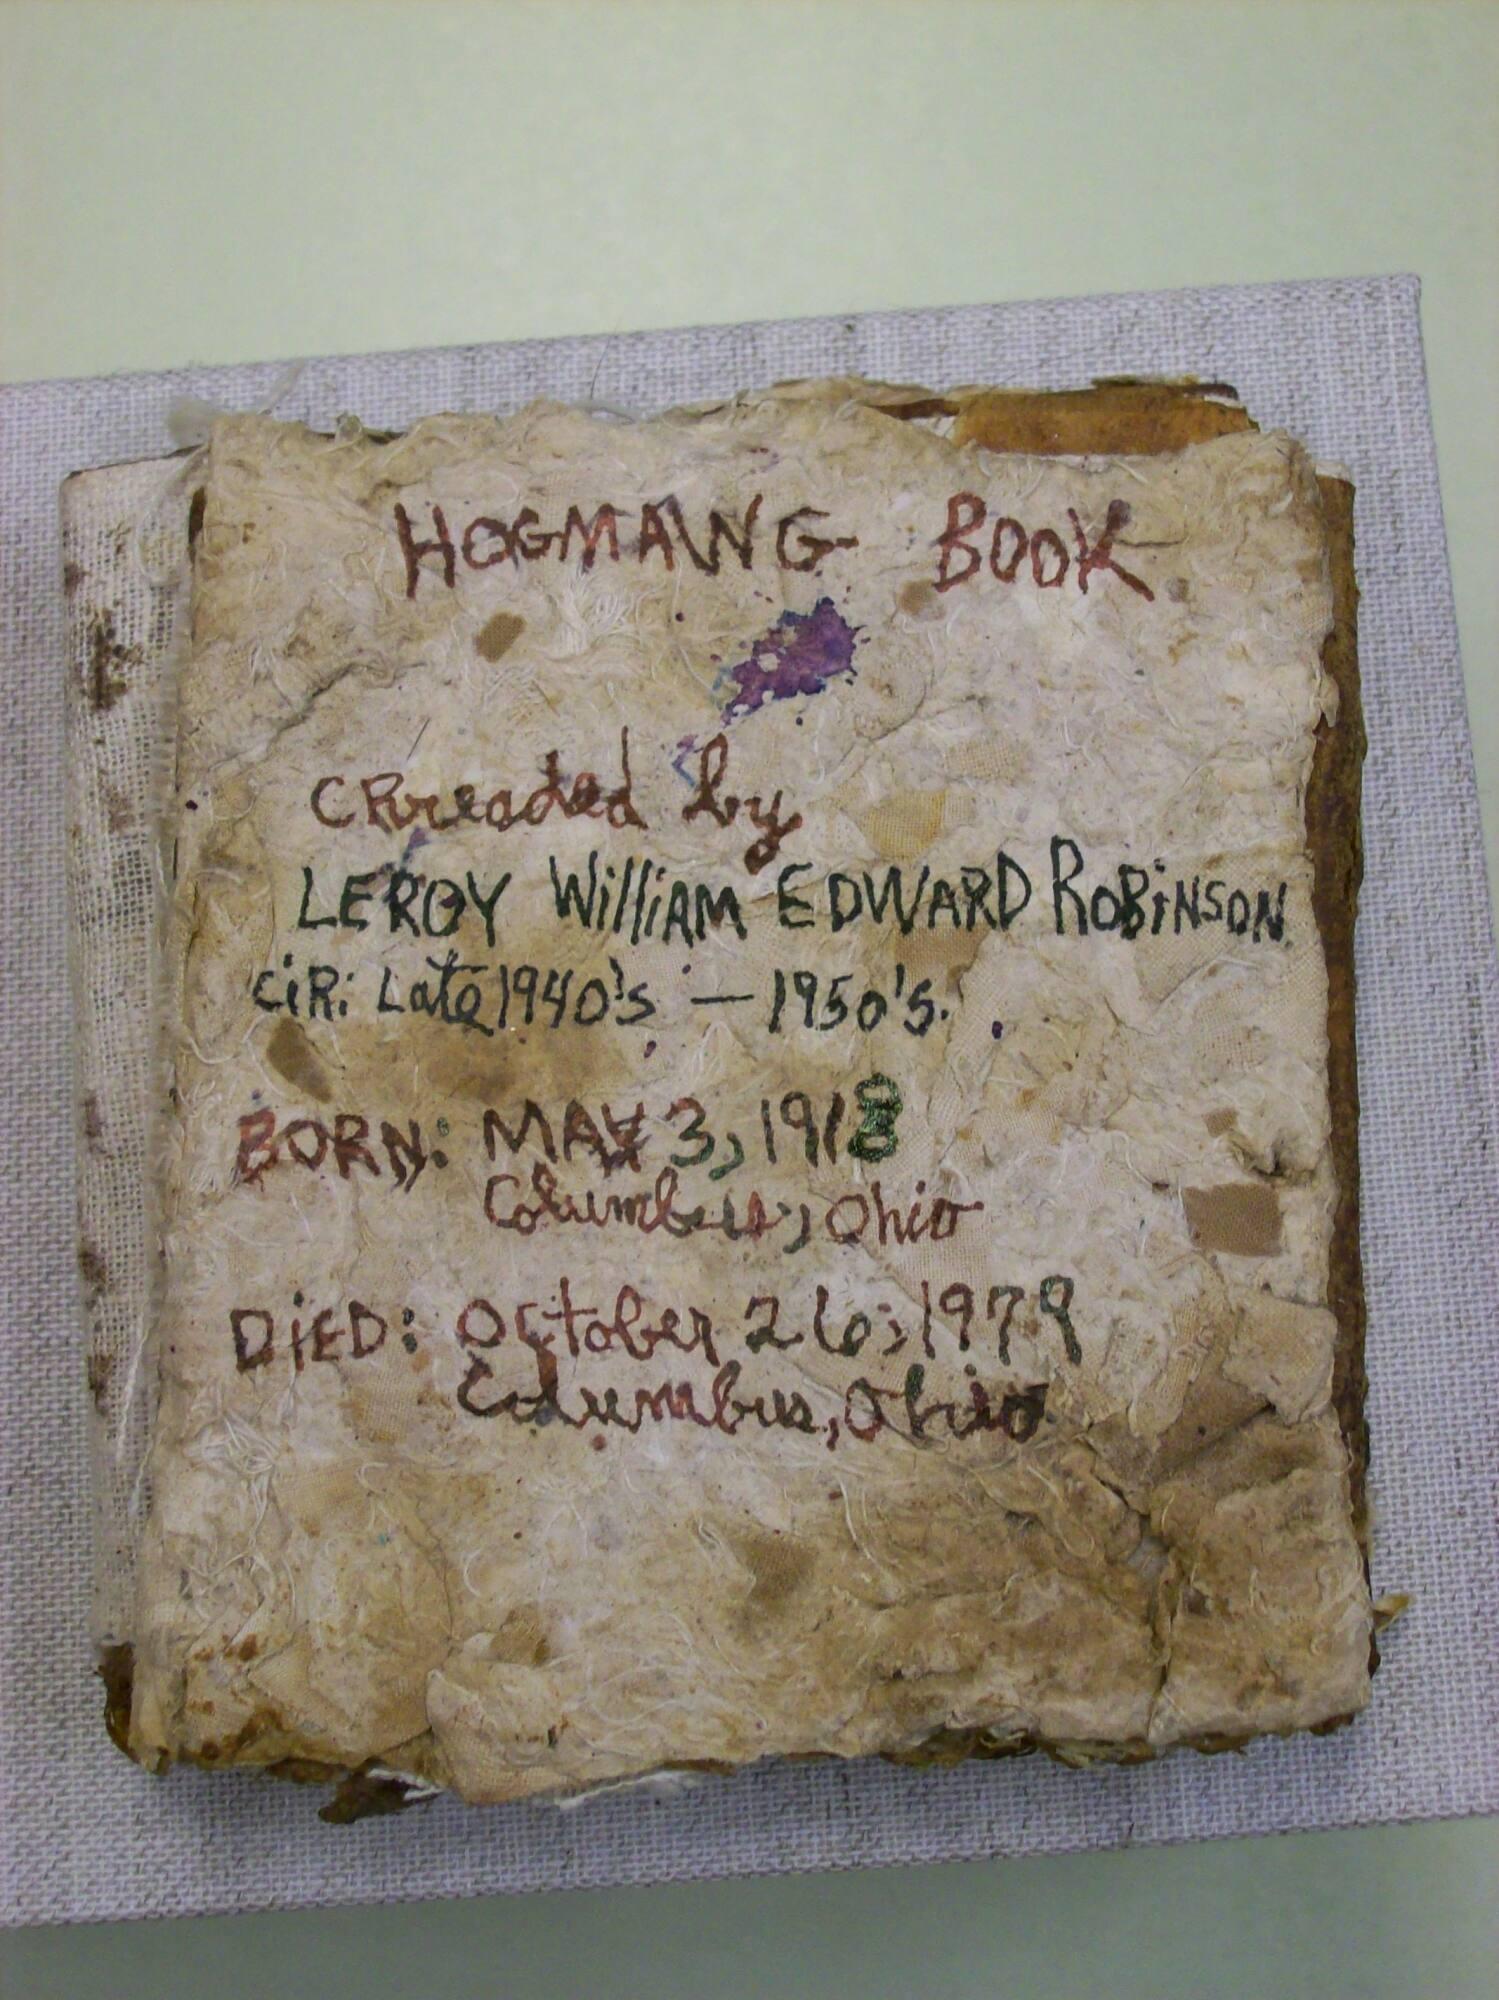 HOGMAWG BOOK
CRreaded by
LEROY William EDWARD ROBiNSON
CiR: Late 1940's — 1950's.
BORN: MAY 3, 1918
Columbus, Ohio
DiED: October 26, 1979
Columbus, Ohio